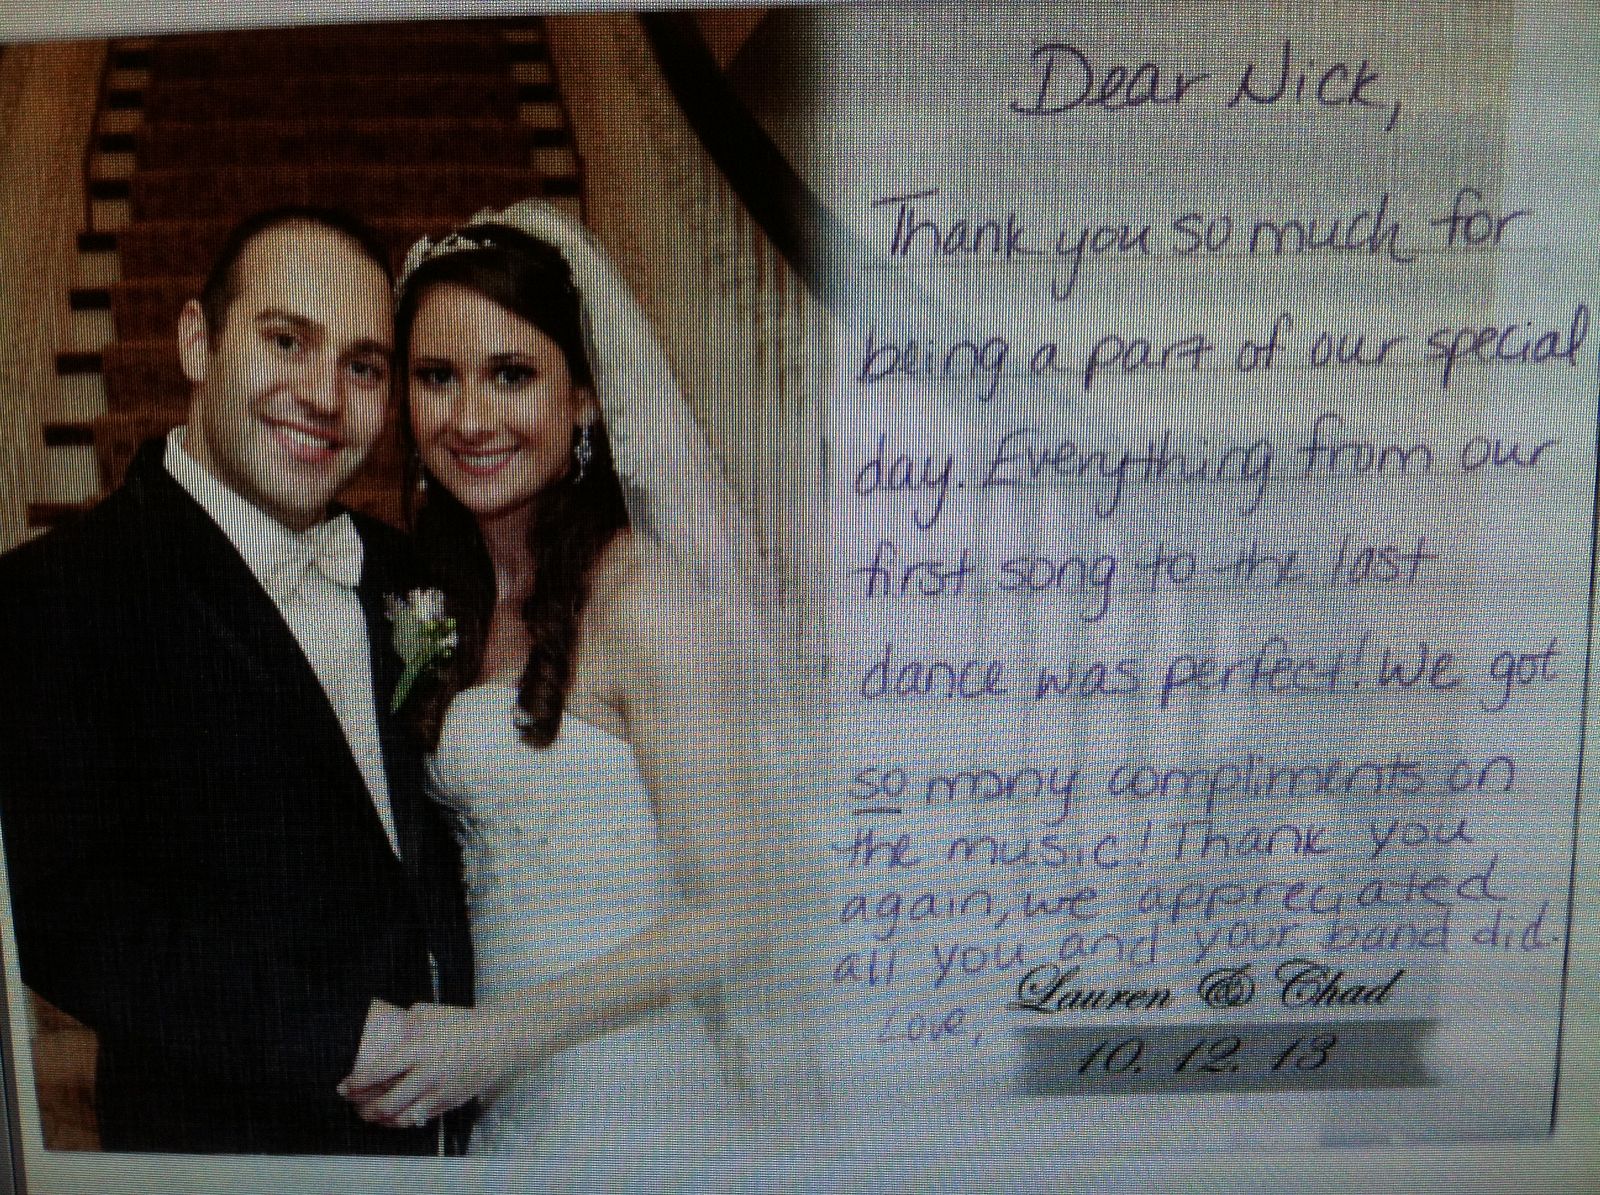 Dear Nick,
Thank you so much for
being a part of our special
day. Everything from our
first song to the last
dance was perfect! We got
so many compliments on
the music! Thank you
again, we appreciated
all you and your band did.
Love, Lauren & Chad
10. 12. 13